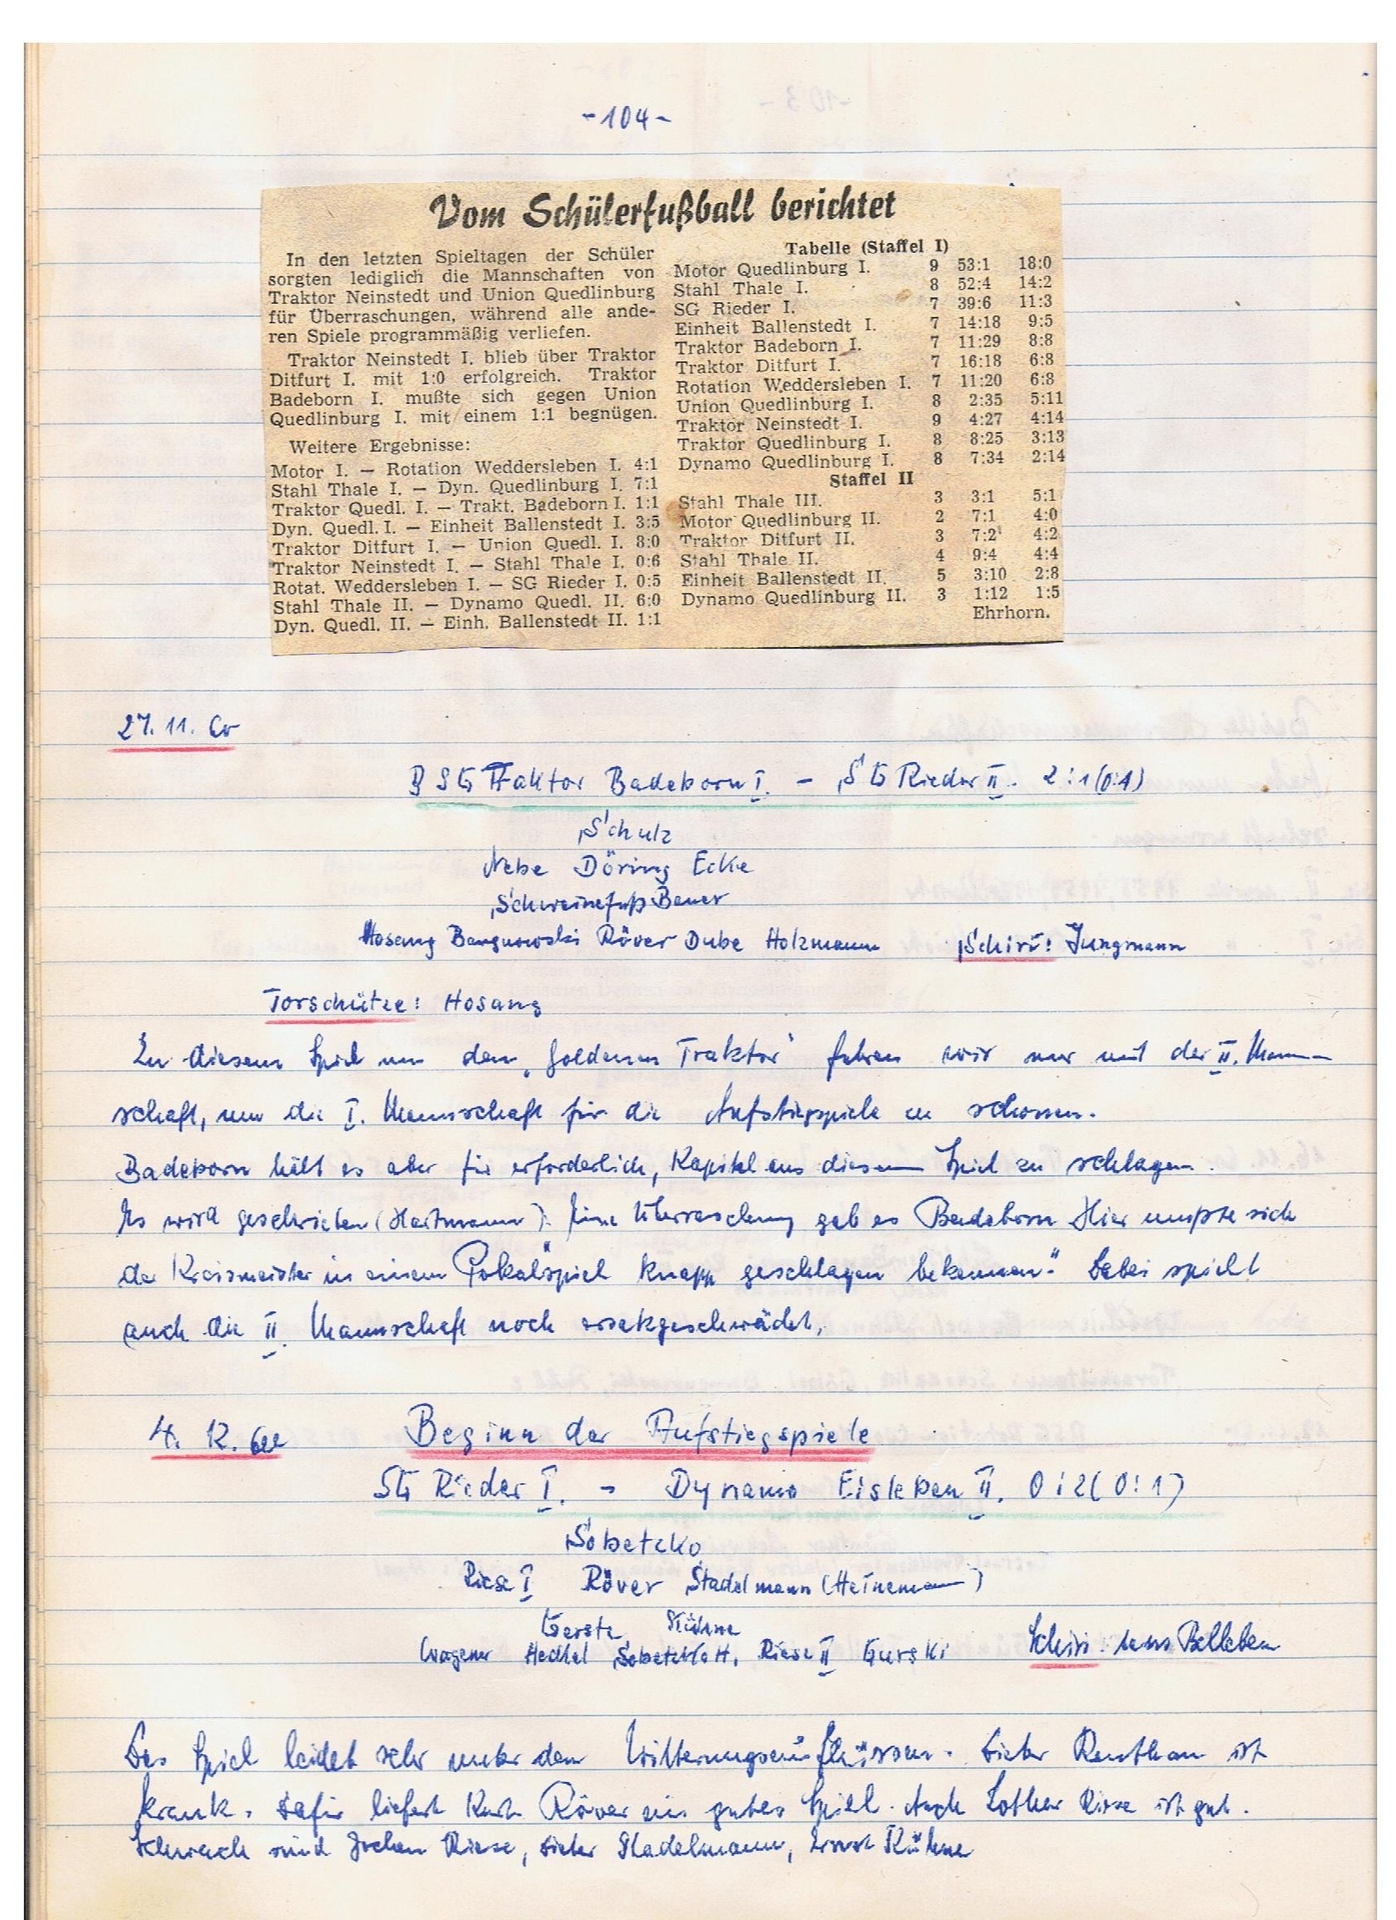 -104-
Vom Schülerfußball berichtet
In den letzten Spieltagen der Schüler
sorgten lediglich die Mannschaften von
Traktor Neinstedt und Union Quedlinburg
für Überraschungen, während alle ande-
ren Spiele programmäßig verliefen.
Traktor Neinstedt I. blieb über Traktor
Ditfurt I. mit 1:0 erfolgreich. Traktor
Badeborn I. mußte sich gegen Union
Quedlinburg I. mit einem 1:1 begnügen.
Weitere Ergebnisse:
Motor I. — Rotation Weddersleben I. 4:1
Stahl Thale I. — Dyn. Quedlinburg I. 7:1
Traktor Quedl. I. — Trakt. Badeborn I. 1:1
Dyn. Quedl. I. — Einheit Ballenstedt I. 3:5
Traktor Ditfurt I. — Union Quedl. I. 8:0
Traktor Neinstedt I. — Stahl Thale I. 0:6
Rotat. Weddersleben I. — SG Rieder I. 0:5
Stahl Thale II. — Dynamo Quedl. II. 6:0
Dyn. Quedl. II. — Einh. Ballenstedt II. 1:1
Tabelle (Staffel I)
Motor Quedlinburg I. 9 53:1 18:0
Stahl Thale I. 8 52:4 14:2
SG Rieder I. 7 39:6 11:3
Einheit Ballenstedt I. 7 14:18 9:5
Traktor Badeborn I. 7 11:29 8:8
Traktor Ditfurt I. 7 16:18 6:8
Rotation Weddersleben I. 7 11:20 6:8
Union Quedlinburg I. 8 2:35 5:11
Traktor Neinstedt I. 9 4:27 4:14
Traktor Quedlinburg I. 8 8:25 3:13
Dynamo Quedlinburg I. 8 7:34 2:14
Staffel II
Stahl Thale III. 3 3:1 5:1
Motor Quedlinburg II. 2 7:1 4:0
Traktor Ditfurt II. 3 7:2 4:2
Stahl Thale II. 4 9:4 4:4
Einheit Ballenstedt II. 5 3:10 2:8
Dynamo Quedlinburg II. 3 1:12 1:5
Ehrhorn.
27. 11. 60
BSG Traktor Badeborn I. - SG Rieder II. 2:1 (0:1)
Schulz
Nebe Döring Ecke
Schweinefuß Bauer
Hosang Bargnowski Röver Dube Holzmann Schiri: Jungmann
Torschütze: Hosang
Zu diesem Spiel um den "Goldenen Traktor" fahren wir nur mit der II. Mann-
schaft, um die I. Mannschaft für die Aufstiegspiele zu schonen.
Badeborn hält es aber für erforderlich, Kapital aus diesem Spiel zu schlagen.
Es wird geschrieben (Hartmann): Eine Überraschung gab es Badeborn Hier mußte sich
der Kreismeister in einem Pokalspiel knapp geschlagen bekennen." Dabei spielt
auch die II. Mannschaft noch ersatzgeschwächt.
4. 12. 60 Beginn der Aufstiegspiele
SG Rieder I. - Dynamo Eisleben II. 0:2 (0:1)
Sobetzko
Riese I Röver Stadelmann (Heinemann)
Gerste Kühne
Wagener Hechtel Sobetzko H. Riese II Gurski Schiri: aus Belleben
Das Spiel leidet sehr unter den Witterungseinflüssen. Dieter ist
krank. Dafür liefert Kurt Röver ein gutes Spiel. Auch Lothar Riese ist gut.
Schwach sind Jochen Riese, Dieter Stadelmann, Ernst Kühne